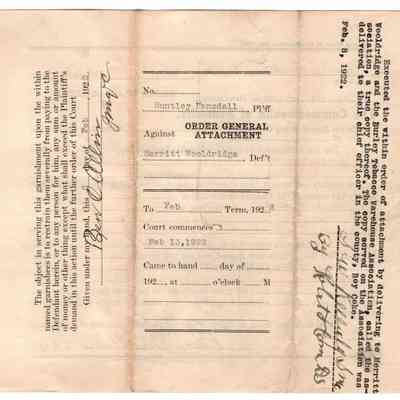 The object in serving this garnishment upon the within
named garnishees is to restrain them severally from paying to the
Defendant herein, or to any person for him, any sum or amount
of money or other thing except what shall exceed the Plaintiff's
demand in this action until the further order of this Court
Given under my hand, this day of Feb 1922.
No.
Huntley Fansdall, Pl'ff
Against ORDER GENERAL
ATTACHMENT
Merritt Wooldridge, Def't
To Feb Term, 1922
Court commences
Feb 13, 1922
Came to hand day of
192 , at o'clock M
Executed the within order of attachment by delivering to Merritt
Wooldridge and the Burley Tobacco Warehouse Association, called the as-
sociation, a true copy thereof. The copy served on the Association was
delivered to their chief officer in the county, Roy Coke.
Feb. 8, 1922.
By